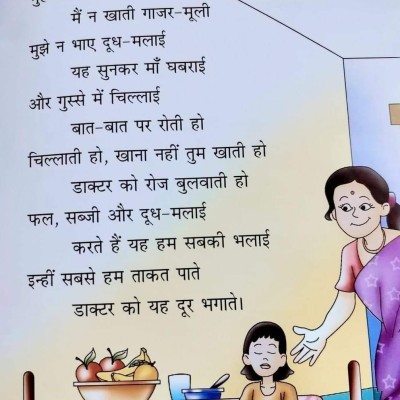 मैं न खाती गाजर-मूली
मुझे न भाए दूध-मलाई
यह सुनकर माँ घबराई
और गुस्से में चिल्लाई
बात-बात पर रोती हो
चिल्लाती हो, खाना नहीं तुम खाती हो
डाक्टर को रोज बुलवाती हो
फल, सब्जी और दूध-मलाई
करते हैं यह हम सबकी भलाई
इन्हीं सबसे हम ताकत पाते
डाक्टर को यह दूर भगाते।